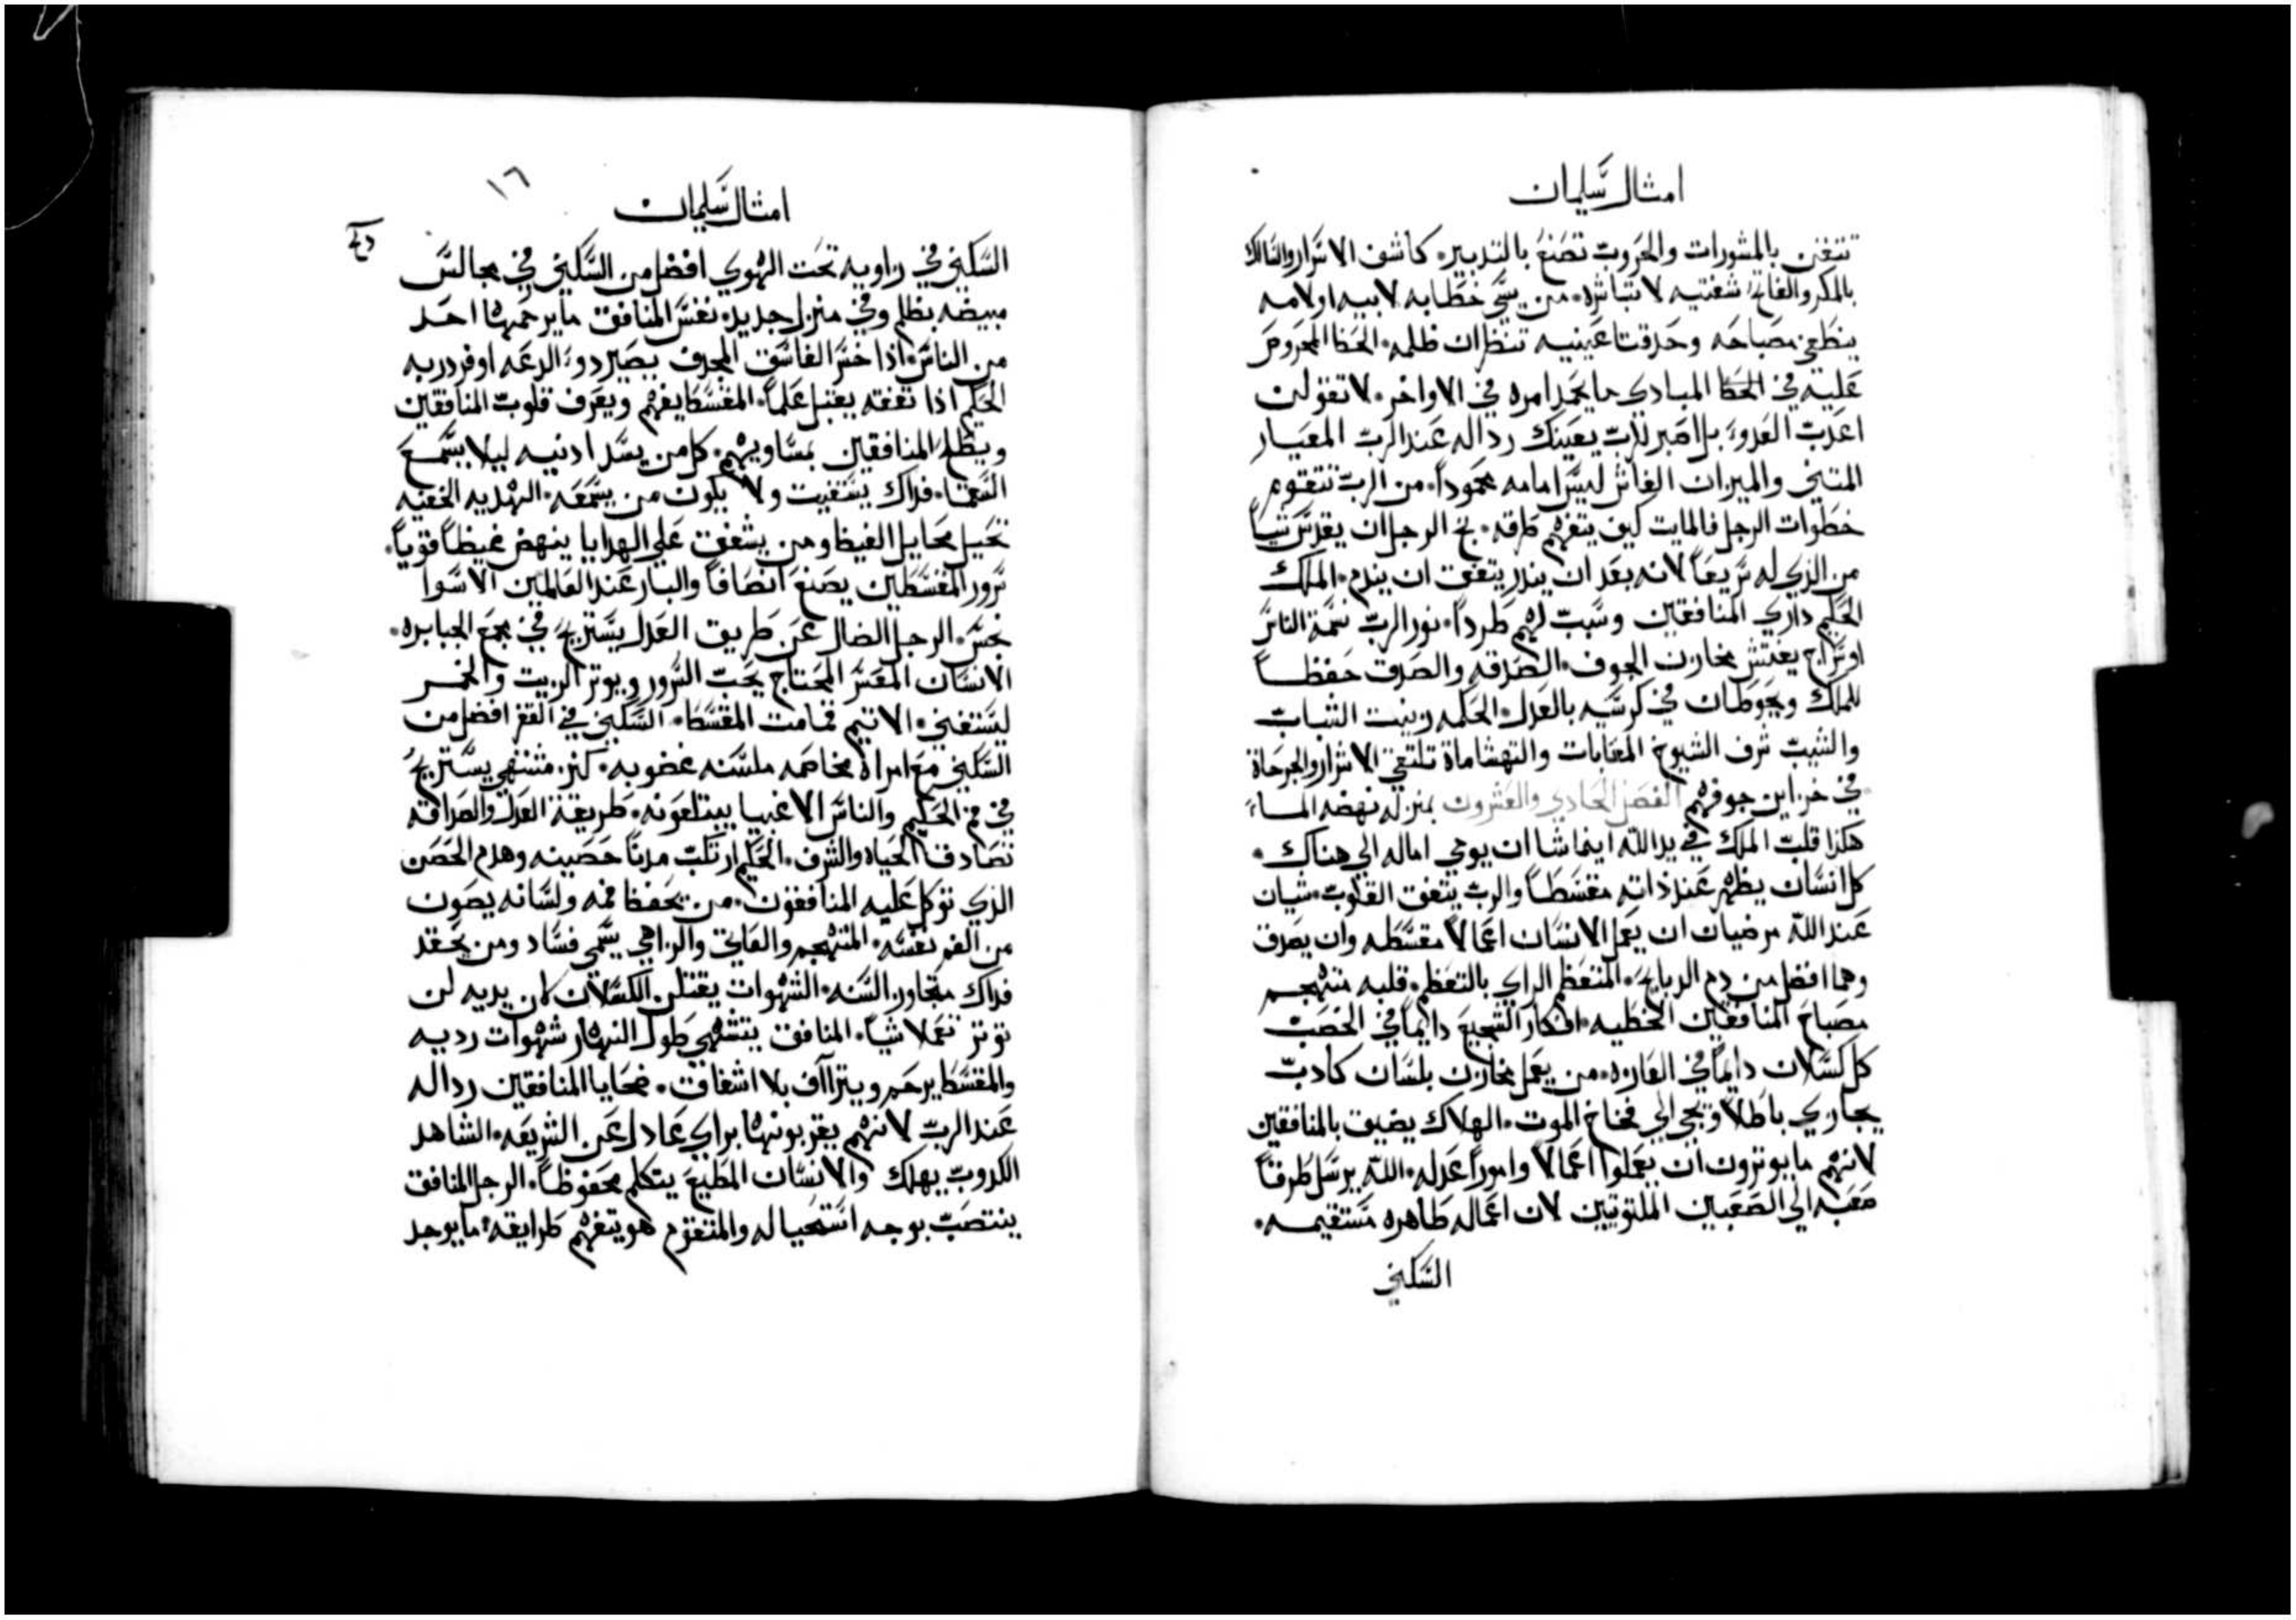 امثال سليمان
تتغن بالمشورات والحروب تصنع بالتدبير كاشف الاسرار والسالك
بالمكر والفاتح شفتيه لا تباشره من يسي خطابه لابيه او لامه
ينطفي مصباحه وحدقتا عينيه تنظران ظلمه الحظ المحروص
عليه في الحظ المبادي ما يحمد امره في الاواخر لا تقولن
اعذب العدو بل اصبر للرب يعينك رداله عند الرب المعيار
المتني والميزان الغاش ليس امامه محمودا من الرب تتقوم
خطوات الرجل فالمايت كيف يتفهم طرقه فخ الرجل ان يقدس شيا
من الذي له سريعا لانه بعد ان ينذر يتفق ان يندم الملك
الحكيم داري المنافقين وسبب لهم طردا نور الرب نسمة الناس
او سراج يفتش مخازن الجوف الصدقه والصدق حفظا
للملك ويحوطان في كرسيه بالعدل الحكمه زينت الشباب
والشيب شرف الشيوخ المعابات والتهشاماة تلتقي الاشرار والجرحاة
في خزاين جوفهم الفصل الحادي والعشرون بمنزله نهضه الماء
هكذا قلب الملك في يد الله اينما شا ان يوحي اماله الي هناك
كل انسان يظهر عند ذاته مقسطا والرب يتفق القلوب شيان
عند الله مرضيان ان يعمل الانسان اعمالا مقسطه وان يصدق
وهما افضل من دم الدبايح المتعظم الراي بالتعظم قلبه متهجم
مصباح المنافقين الخطيه افكار الشجيع دايما في الخصب
كل كسلان دايما في الفازه من يعمل مخازن بلسان كادب
يجاري باطلا ويجي الي فخاخ الموت الهلاك يضيف بالمنافقين
لانهم ما يوترون ان يعملوا اعمالا وامورا عدله الله يرسل طرقا
معبه الي الصعبين الملتويين لان اعماله طاهره مستقيمه
السكني
١٦
امثال سليمان
السكني في زاويه تحت الهوي افضل من السكني في مجالس
مبيضه بظلم وفي منزل جديد نفس المنافق ما يرحمها احد
من الناس اذا خسر الفاسق المجدف يصير دو الدعه اوفر دربه
الحكيم اذا تفقه يقبل علما المقسط يفهم ويعرف قلوب المنافقين
ويظلم المنافقين بمساويهم كل من يسد ادنيه ليلا يسمع
الضعفا فداك يستغيت ولا يكون من يسمعه الهديه الخفيه
تخيل مخايل الغيظ ومن يشفق علي الهدايا ينهض غيظا قويا
سرور المقسطين يصنع انصافا والبار عند الفالمين الاسوا
نجس الرجل الضال عن طريق العدل يستريح في مجمع الجبابره
الانسان المعسر المحتاج يحب السرور ويوتر الزيت والخمر
ليستغني الاتيم قمامت المقسط السكني في القفر افضل من
السكني مع امراه مخاصمه ملسنه غضوبه كنز مشتهي يستريح
في فم الحكيم والناس الاغبيا يبتلعونه طريقة العدل والصداقه
تصادف الحياه والشرف الحكيم ارتكب مدنا حصينه وهدم الحصن
الذي توكل عليه المنافقون من يحفظ فمه ولسانه يصون
من الغم نفسه المتهجم والفايق والزاهي يسمي فساد ومن يحقد
فداك متجاوز السنه الشهوات يقتلن الكسلان لان يديه لن
توتر تعملا شيا المنافق يتشهي طول النهار شهوات رديه
والمقسط يرحم ويتراآف بلا اشفاق ضحايا المنافقين رداله
عند الرب لانهم يقربونها براي عادل عن الشريعه الشاهد
الكدوب يهلك والانسان المطيع يتكلم محفوظا الرجل المنافق
ينتصب بوجه استحيا له والمتقوم هو يتفهم طرايقه ما يوجد